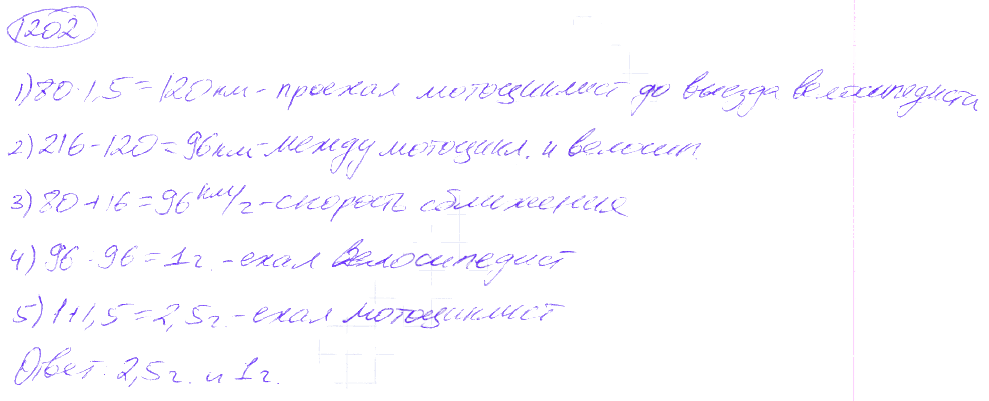 1202
1) 80·1,5=120км - проехал мотоциклист до выезда велосипедиста
2) 216-120=96км-между мотоцикл. и велосип.
3) 80+16=96 км/г-скорость сближения
4) 96-96=1г. -ехал велосипедист
5) 1+1,5=2,5г.-ехал мотоциклист
Ответ: 2,5г. и 1г.